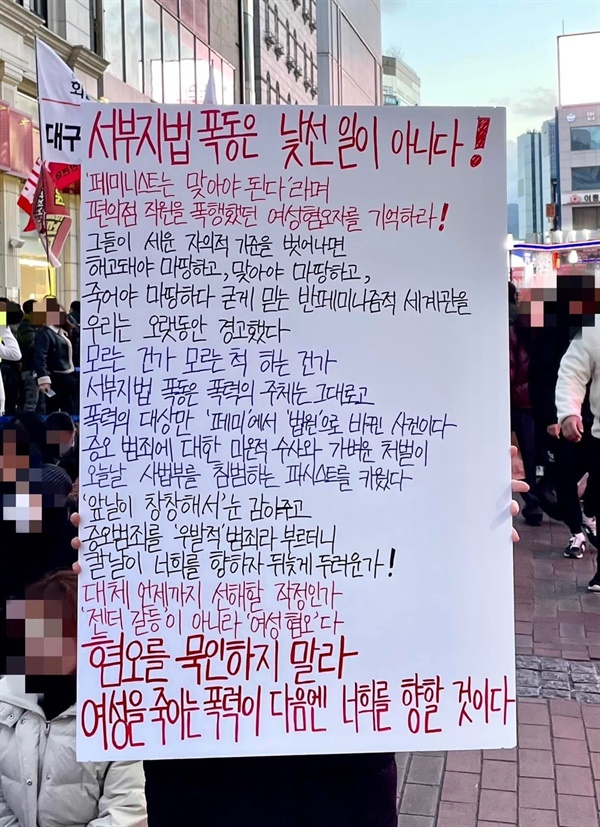 대구
서부지법 폭동은 낯선 일이 아니다!
'페미니스트는 맞아야 된다'라며
편의점 직원을 폭행했던 여성혐오자를 기억하라!
그들이 세운 자의적 기준을 벗어나면
해고돼야 마땅하고, 맞아야 마땅하고,
죽어야 마땅하다 굳게 믿는 반페미니즘적 세계관을
우리는 오랫동안 경고했다
모르는 건가 모르는 척 하는 건가
서부지법 폭동은 폭력의 주체는 그대로고
폭력의 대상만 '페미'에서 '법원'으로 바뀐 사건이다
증오 범죄에 대한 미온적 수사와 가벼운 처벌이
오늘날 사법부를 침범하는 파시스트를 키웠다
'앞날이 창창해서' 눈 감아주고
증오범죄를 '우발적' 범죄라 부르더니
칼날이 너희를 향하자 뒤늦게 두려운가!
대체 언제까지 선해할 작정인가
'젠더 갈등'이 아니라 '여성혐오'다
혐오를 묵인하지 말라
여성을 죽이는 폭력이 다음엔 너희를 향할 것이다